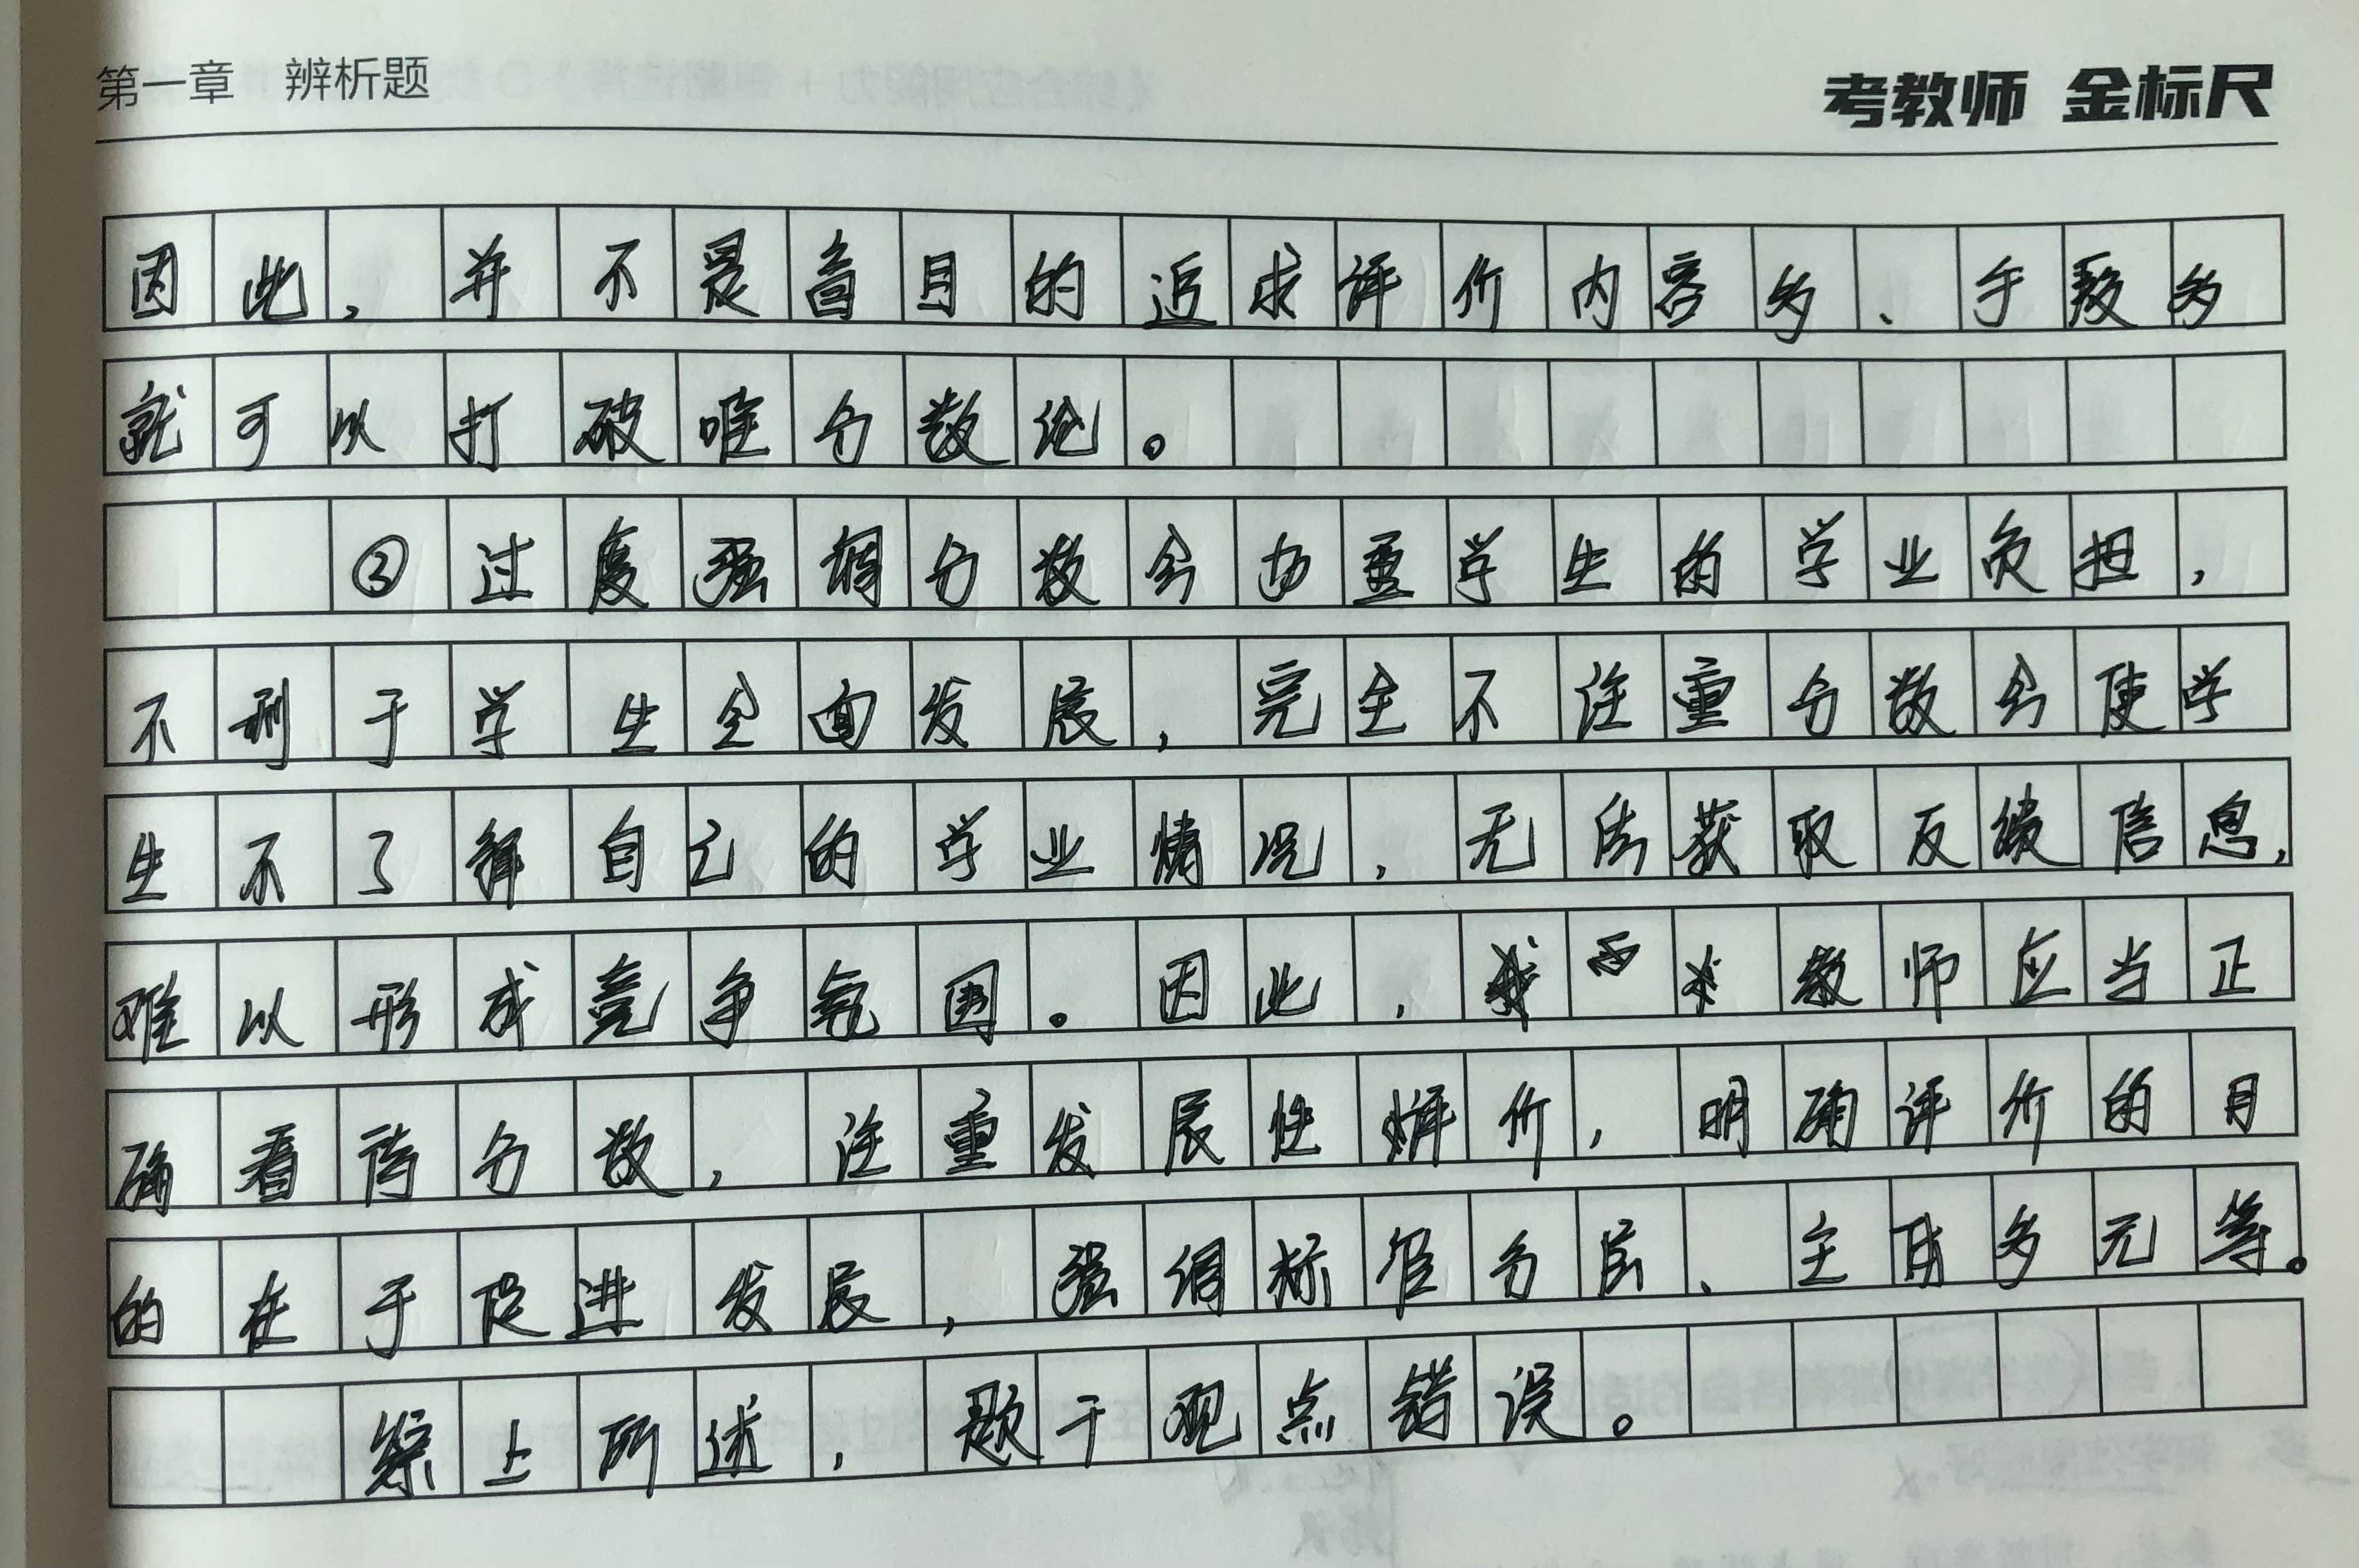 第一章 辨析题
考教师 金标尺
因此，并不是盲目的追求评价内容多、手段多
就可以打破唯分数论。
③过度强调分数会加重学生的学业负担，
不利于学生全面发展，完全不注重分数会使学
生不了解自己的学业情况，无法获取反馈信息，
难以形成竞争氛围。因此，教师应当正
确看待分数，注重发展性评价，明确评价的目
的在于促进发展，强调标准分层、主体多元等。
综上所述，题干观点错误。